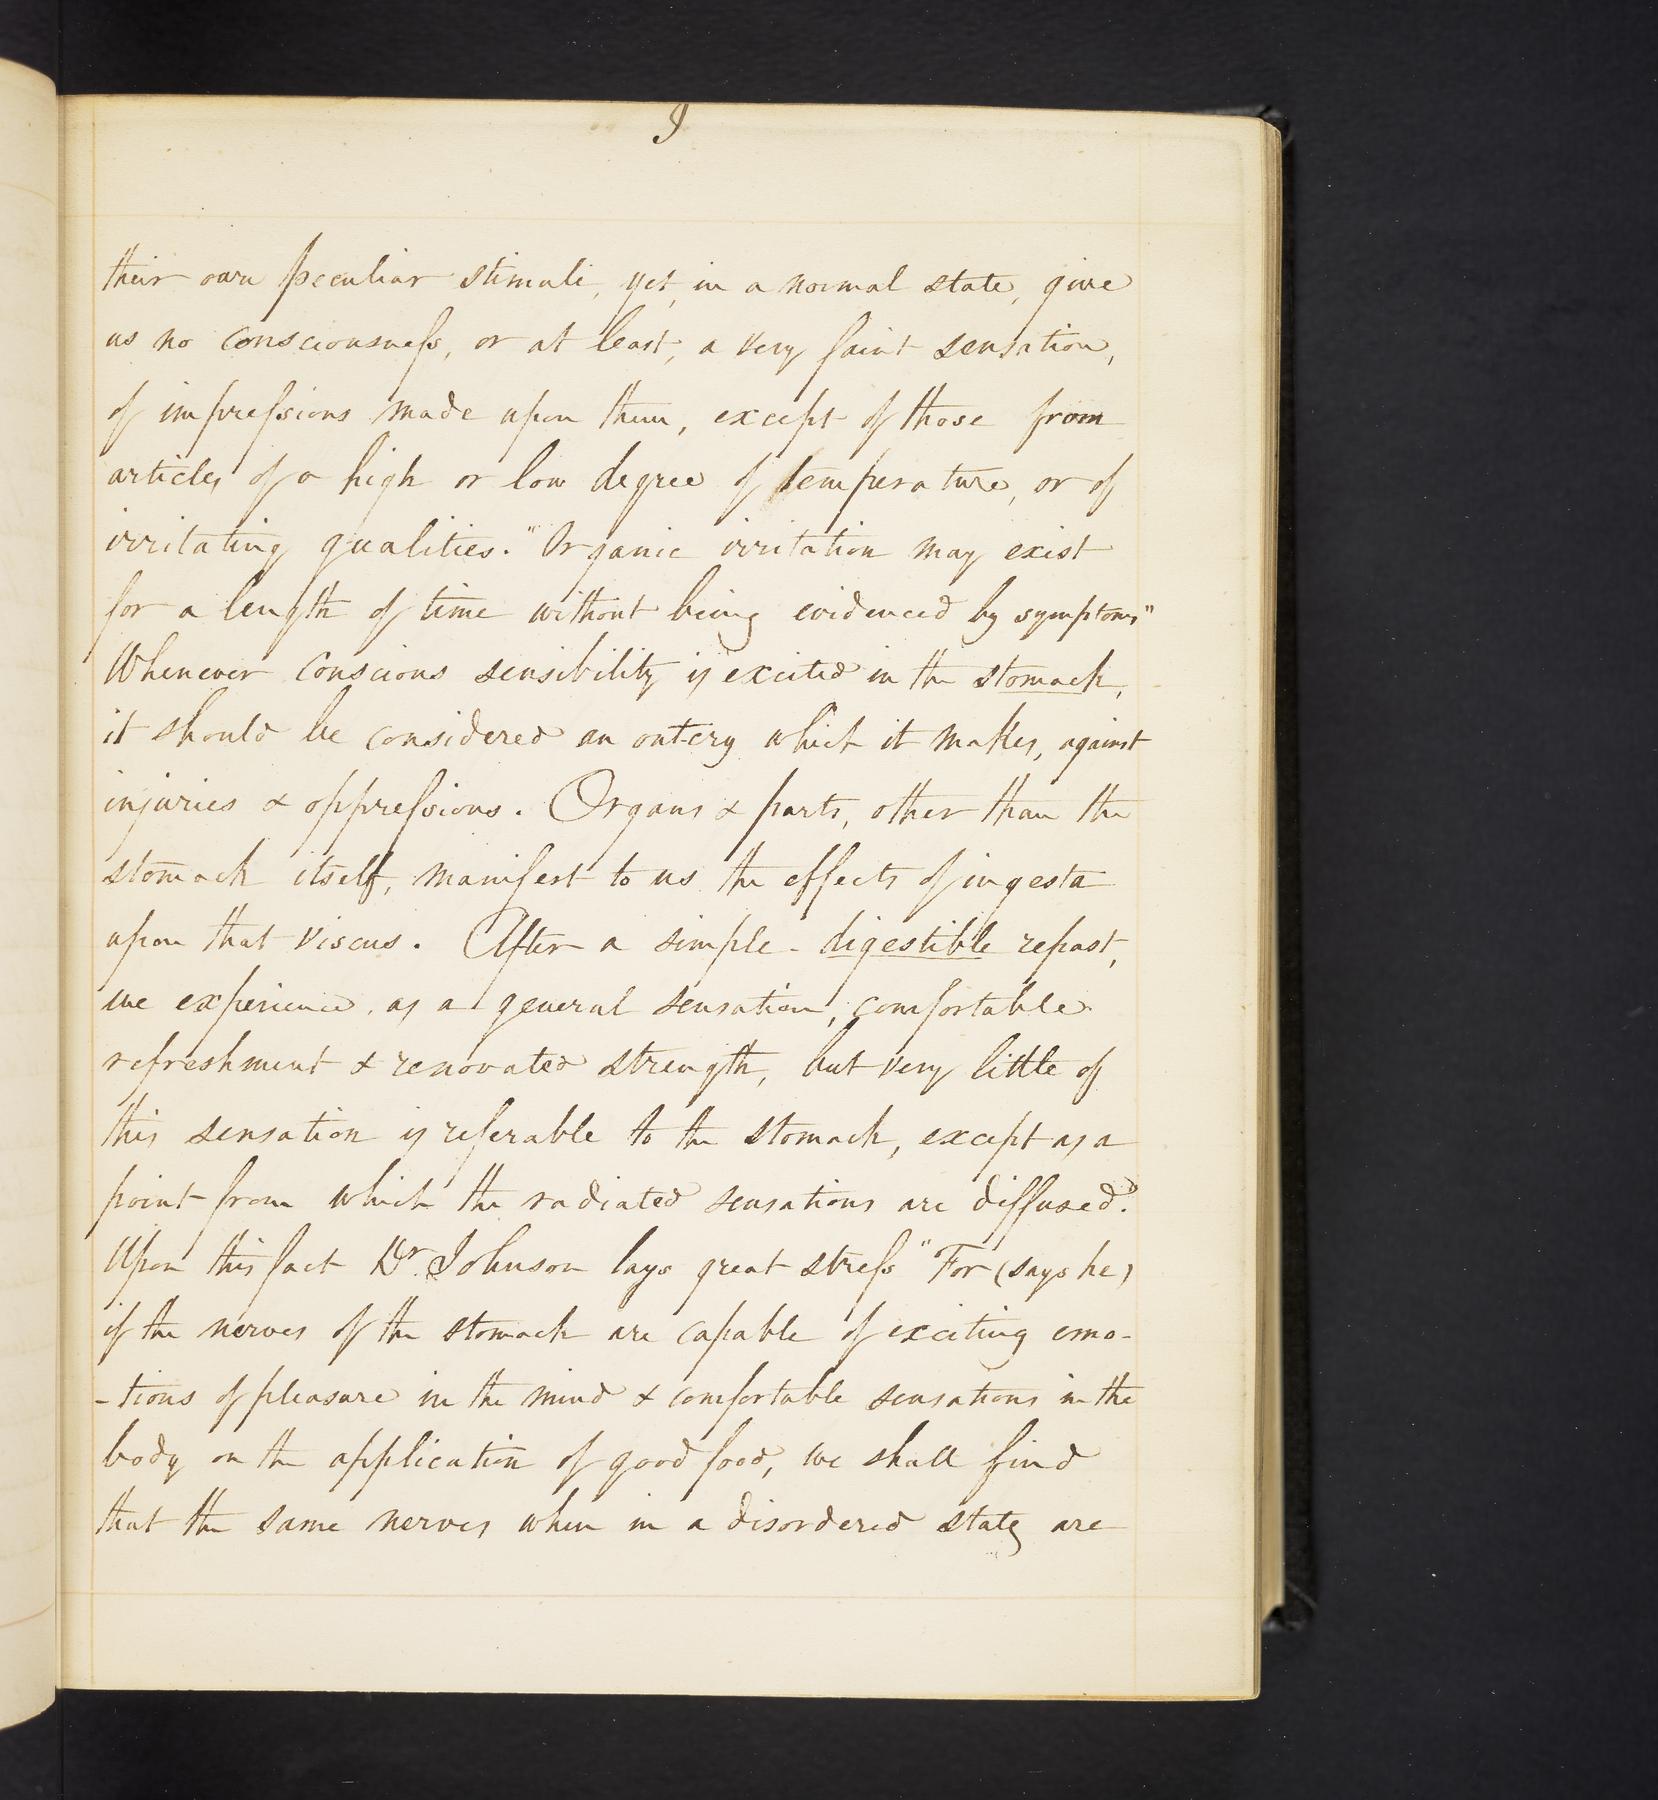 9
their own peculiar stimuli, yet, in a normal state, give
us no consciousness, or at least, a very faint sensation,
of impressions made upon them, except of those from
articles of a high or low degree of temperature, or of
irritating qualities. "Organic irritation may exist
for a length of time without being evidenced by symptoms"
Whenever conscious sensibility is excited in the stomach,
it should be considered an outcry which it makes, against
injuries & oppressions. Organs & parts, other than the
stomach itself, manifest to us the effects of ingesta
upon that viscus. After a simple - digestible repast,
we experience, as a general sensation, comfortable
refreshment & renovated strength, but very little of
this sensation is referable to the stomach, except as a
point from which the radiated sensations are diffused."
Upon this fact Dr. Johnson lays great stress "For (says he)
if the nerves of the stomach are capable of exciting emo-
-tions of pleasure in the mind & comfortable sensations in the
body on the application of good food, we shall find
that the same nerves when in a disordered state, are